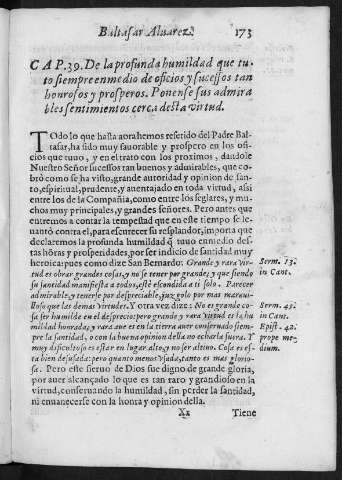 Baltasar Aluarez. 173
CAP. 39. De la profunda humildad que tu-
uo siempre en medio de oficios y sucessos tan
honrosos y prosperos. Ponense sus admira
bles sentimientos cerca desta virtud.
TOdo lo que hasta aora hemos referido del Padre Bal-
tasar, ha sido muy fauorable y prospero en los ofi-
cios que tuuo, y en el trato con los proximos, dandole
Nuestro Señor sucessos tan buenos y admirables, que co-
bró como se ha visto, grande autoridad y opinion de san-
to, espiritual, prudente, y auentajado en toda virtud, assi
entre los de la Compañia, como entre los seglares, y mu-
chos muy principales, y grandes señores. Pero antes que
entremos a contar la tempestad que en este tiempo se le-
uantó contra el, para escurecer su resplandor, importa que
declaremos la profunda humildad q̃ tuuo en medio des-
tas hõras y prosperidades, por ser indicio de santidad muy
heroica: pues como dize San Bernardo: Grande y rara vir-
tud es obrar grandes cosas, y no se tener por grande; y que siendo
su santidad manifiesta a todos, esté escondida a ti solo. Parecer
admirable, y tenerse por despreciable, juzgolo por mas maraui-
lloso que las demas Virtudes. Y otra vez dize: No es grande co-
sa ser humilde en el desprecio: pero grande y rara virtud es la hu-
mildad honrada, y rara aue es en la tierra auer conseruado siem-
pre la santidad, o con la buena opinion della no echarla fuera. Y
muy dificultoso es estar en lugar alto, y no ser altiuo. Cosa es es-
ta bien desusada: pero quanto menos vsada, tanto es mas glorio-
sa. Pero este sieruo de Dios fue digno de grande gloria,
por auer alcançado lo que es tan raro y grandioso en la
virtud, conseruando la humildad, sin perder la santidad,
ni enuanecerse con la honra y opinion della.
Serm. 13.
in Cant.
Serm. 45.
in Cant.
Epist. 42.
prope me-
dium.
Xx Tiene